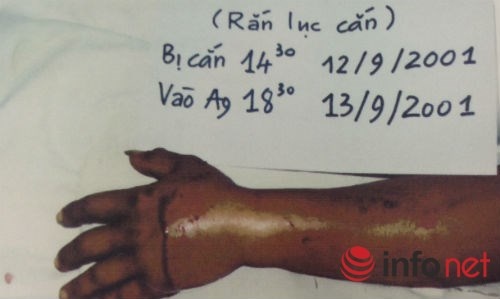 (Rắn lục cắn)
Bị cắn 14³⁰ 12/9/2001
Vào Ag 18³⁰ 13/9/2001
infonet